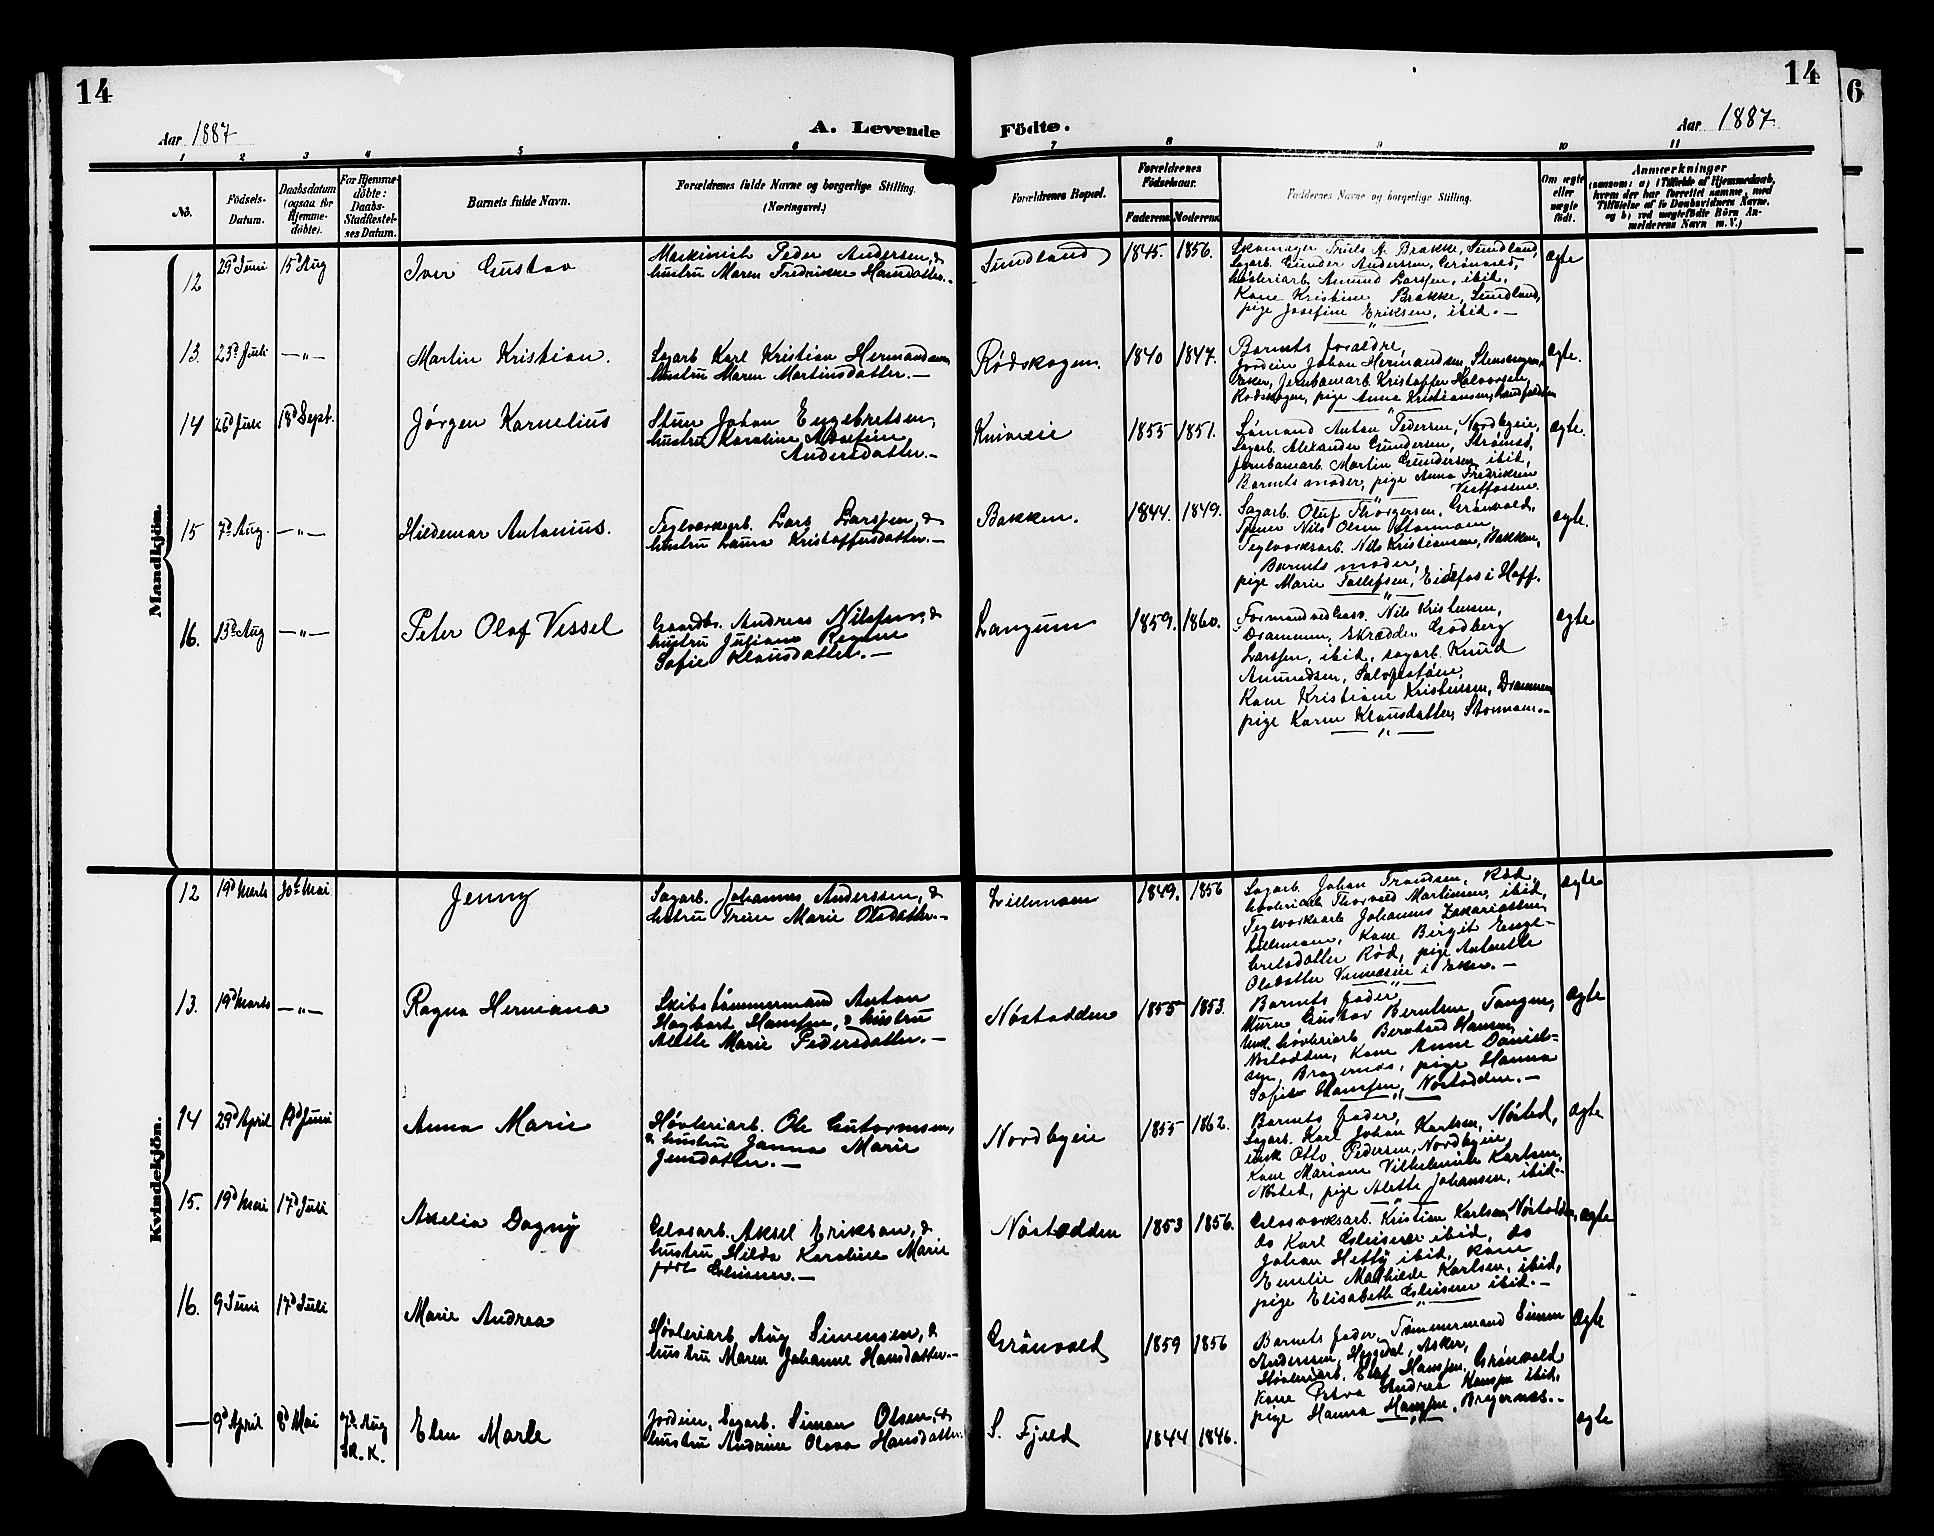 14
14
6
Aar 1887
A. Levende Födte.
Aar 1887
1 2 3 4 5 6 7 8 9 10 11
No.
Födsels-Datum.
Daabsdatum (ogsaa for Hjemme-döbte).
For Hjemme-döbte: Daabs-Stadfæstel-ses Datum.
Barnets fulde Navn.
Forældrenes fulde Navne og borgerlige Stilling.
(Næringsvei.)
Forældrenes Bopæl.
Forældrenes Födselsaar.
Faderens. Moderens.
Faddernes Navne og borgerlige Stilling.
Om ægte eller uægte födt.
Anmærkninger
(saasom: a) i Tilfælde af Hjemmedaab, hvem der har forrettet samme, med Tilföielse af to Daabsvidners Navne, og b) ved uægtefödte Börn Anmelderens Navn m. V.)
Mandkjön.
12 29d Juni 15d Aug
Iver Gustav
Maskinist Peder Andersen, &
hustru Maren Fredrikke Hansdatter.-
Sundland
1845. 1856.
Skomager Truls A. Brakke, Sundland,
Sagarb. Gunder Andersen, Grönvold,
høvleriarb. Amund Larsen, ibid,
Kone Kristine Brakke, Sundland,
pige Josefine Eriksen, ibid.-
ægte
13. 23d Juli —"—
Martin Kristian.
Sagarb Karl Kristian Hermandsen
hustru Maren Martinsdatter.-
Rødskogen.
1840 1847.
Barnets forældre,
Jordein Johan Hermandsen, Stensengen,
Eker, Jernbanearb. Kristoffer Halvorsen,
Rødskogen, pige Anna Kristiansen,
ægte.
14 26d Juli 18d Sept.
Jørgen Kornelius
Stuer Johan Engebretsen,
hustru Karoline Josefine
Andersdatter.-
Kniveie
1855 1851.
Sömand Anton Pedersen, Nordbyeie,
Sagarb. Alexander Gundersen, Strömsö,
Jernbanearb. Martin Gundersen ibid,
Barnets moder, pige Anna Fredriksen
Vestfossen.
ægte.
15 7d Aug. —"—
Hildemar Antonius.
Teglværksarb. Lars Larssen, &
hustru Laura Kristoffersdatter.-
Bakken.
1844. 1849.
Sagarb. Oluf Thorgersen, Grönvold,
Nils Olsen Stormoen
Teglværksarb. Nils Kristiansen, Bakken,
Barnets moder,
pige Marie Tollefsen, Eidsfos i Hoff.
ægte.
16. 13d Aug —"—
Peter Olaf Vessel
Gaardbr. Andreas Nilssen, &
hustru Juliane Regine
Sofie Klausdatter.-
Langum
1859. 1860.
Formand ved Gasv. Nils Kristensen,
Drammen, skrædder Godberg
Larssen, ibid, sagarb. Knud
Amundsen,
Kone Kristiane Kristensen, Drammen
pige Karen Klausdatter, Stormoen.-
ægte
Kvindekjön.
12 19d Marts 30te Mai
Jenny
Sagarb. Johannes Anderssen, &
hustru Trine Marie Olsdatter.-
Lillemoen
1849. 1856
Sagarb. Johan Trondsen, Rød,
høvleriarb Thorvald Martinsen, ibid,
Teglværksarb Johannes Zakariassen,
Lillemoen, Kone Birgit Enge-
bretsdatter Rød, pige Antonette
Olsdatter i Eker.-
ægte
13. 19d Marts —"—
Ragna Hermana
Skibstømmermand Anton
Hagbart Hanssen, & hustru
Alette Marie Pedersdatter.-
Nöstodden
1855 1853.
Barnets fader,
Murer Gustav Berntsen Tangen,
Unk. høvleriarb Bernhard Hansen,
Nöstodden, Kone Anne Daniel-
sen, Bragernæs, pige Hanna
Sofie Hanssen, Nöstodden.-
ægte
14 29d April 19d Juni
Anna Marie
Høvleriarb. Ole Gutormsen,
& hustru Janna Marie
Jensdatter.-
Nordbyeie
1855 1862.
Barnets fader,
Sagarb. Karl Johan Karlsen, Nösted,
Unk Otto Pedersen, Nordbyeie,
Kone Mariane Vilhelmine Karlsen,
Nösted, pige Alette Johansen, ibid.-
ægte
15. 19d Mai 17d Juli
Axelia Dagny
Glasarb. Aksel Erikson, &
hustru Hilda Karoline Marie
född Gleisner.-
Nöstodden
1853 1856.
Glasværksarb. Kristian Karlsen Nöstodden,
do Karl Gleisner ibid, do
Johan Hetty ibid, kone
Emelie Mathilde Karlsen, ibid,
pige Elisabeth Gleisner ibid.-
ægte
16. 9 Juni 17d Juli
Marie Andrea
Høvleriarb. Aug Simensen, &
hustru Maren Johanne Hansdatter.-
Grönvold
1859 1856
Barnets fader, Tömmermand Simen
Andersen, Heggedal, Asker,
Høvleriarb. Elef Hanssen, Grönvold
Kone Petra Andrea Hanssen ibid,
pige Hanna Hanssen, Bragernæs.-
ægte
— 9d April 8d Mai 7d Aug
Sk. K.
Elen Marle
Jordein, Sagarb. Simon Olsen, &
hustru Andrine Olava Hansdatter.
S. Fjeld
1844 1846.
ægte